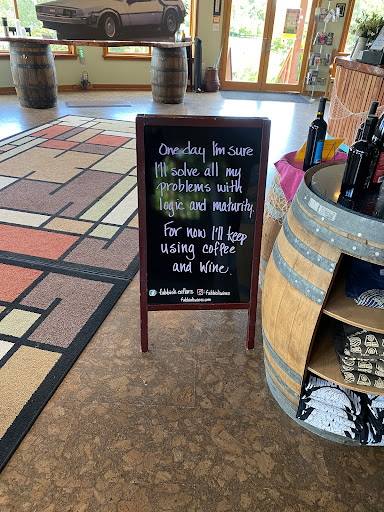 One day I'm sure
I'll solve all my
problems with
logic and maturity.
For now I'll keep
using coffee
and wine.